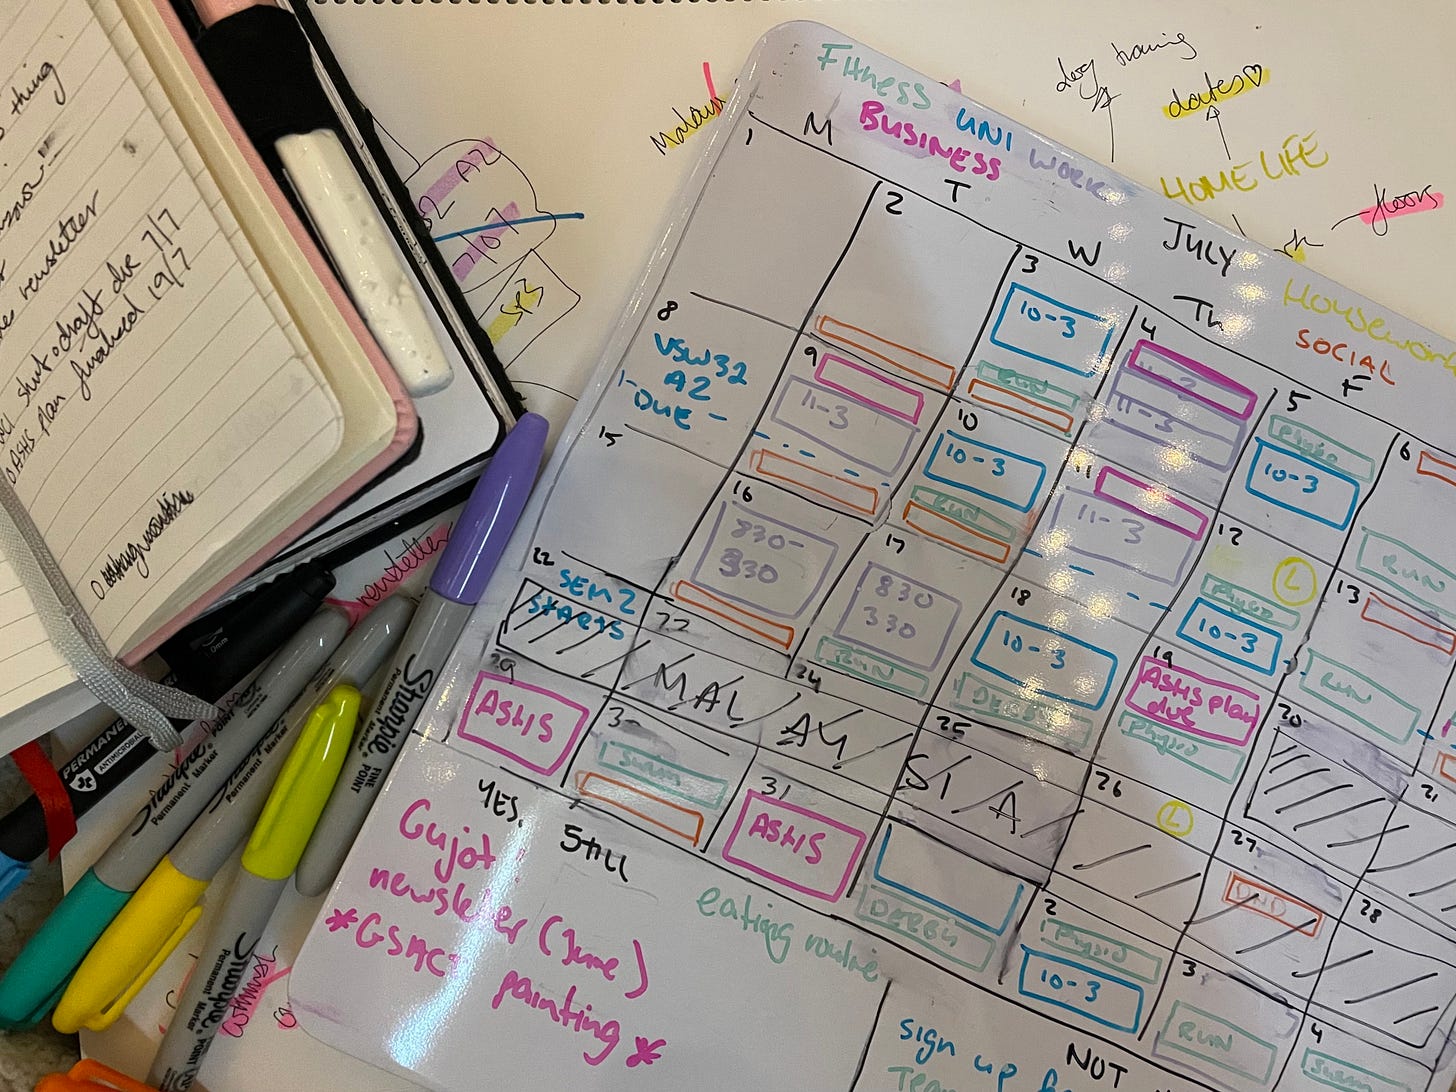 thing
newsletter
draft due 7/7
plan finalised 19/7
A2
SP3
Malaysia
dog training
dates♡
HOME LIFE
floors
newsletter
Fitness UNI WORK
BUSINESS
HOUSEWORK
SOCIAL
JULY
M T W Th F
1
2
3
10-3
RUN
4
11-3
5
Physio
10-3
6
RUN
8
VSW32
A2
-DUE-
9
11-3
10
10-3
RUN
11
11-3
12
L
Physio
10-3
13
RUN
15
16
830-
330
17
830
330
RUN
18
10-3
DERBY
19
ASHS plan
due
Physio
20
21
22
SEM 2
STARTS
24
25
MALAYSIA
26
L
27
DND
28
29
ASHS
Swim
31
ASHS
DERBY
2
Physio
10-3
3
RUN
4
Swim
YES. STILL
newsletter (June)
painting *
eating routine
sign up
NOT
Sharpie
FINE
POINT
Permanent Marker
PERMANENT
ANTIMICROBIAL